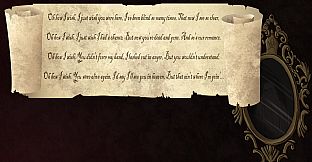 Oh how I wish, I just wish you were here, I've been blind so many times, That now I see so clear,
Oh how I wish, I just wish I had a chance, But once you're dead and gone, And so's our romance,
Oh how I wish, You didn't force my hand, I lashed out in anger, But you wouldn't understand,
Oh how I wish, You were alive again, I'd say I'll see you in heaven, But that ain't where I'm goin ...